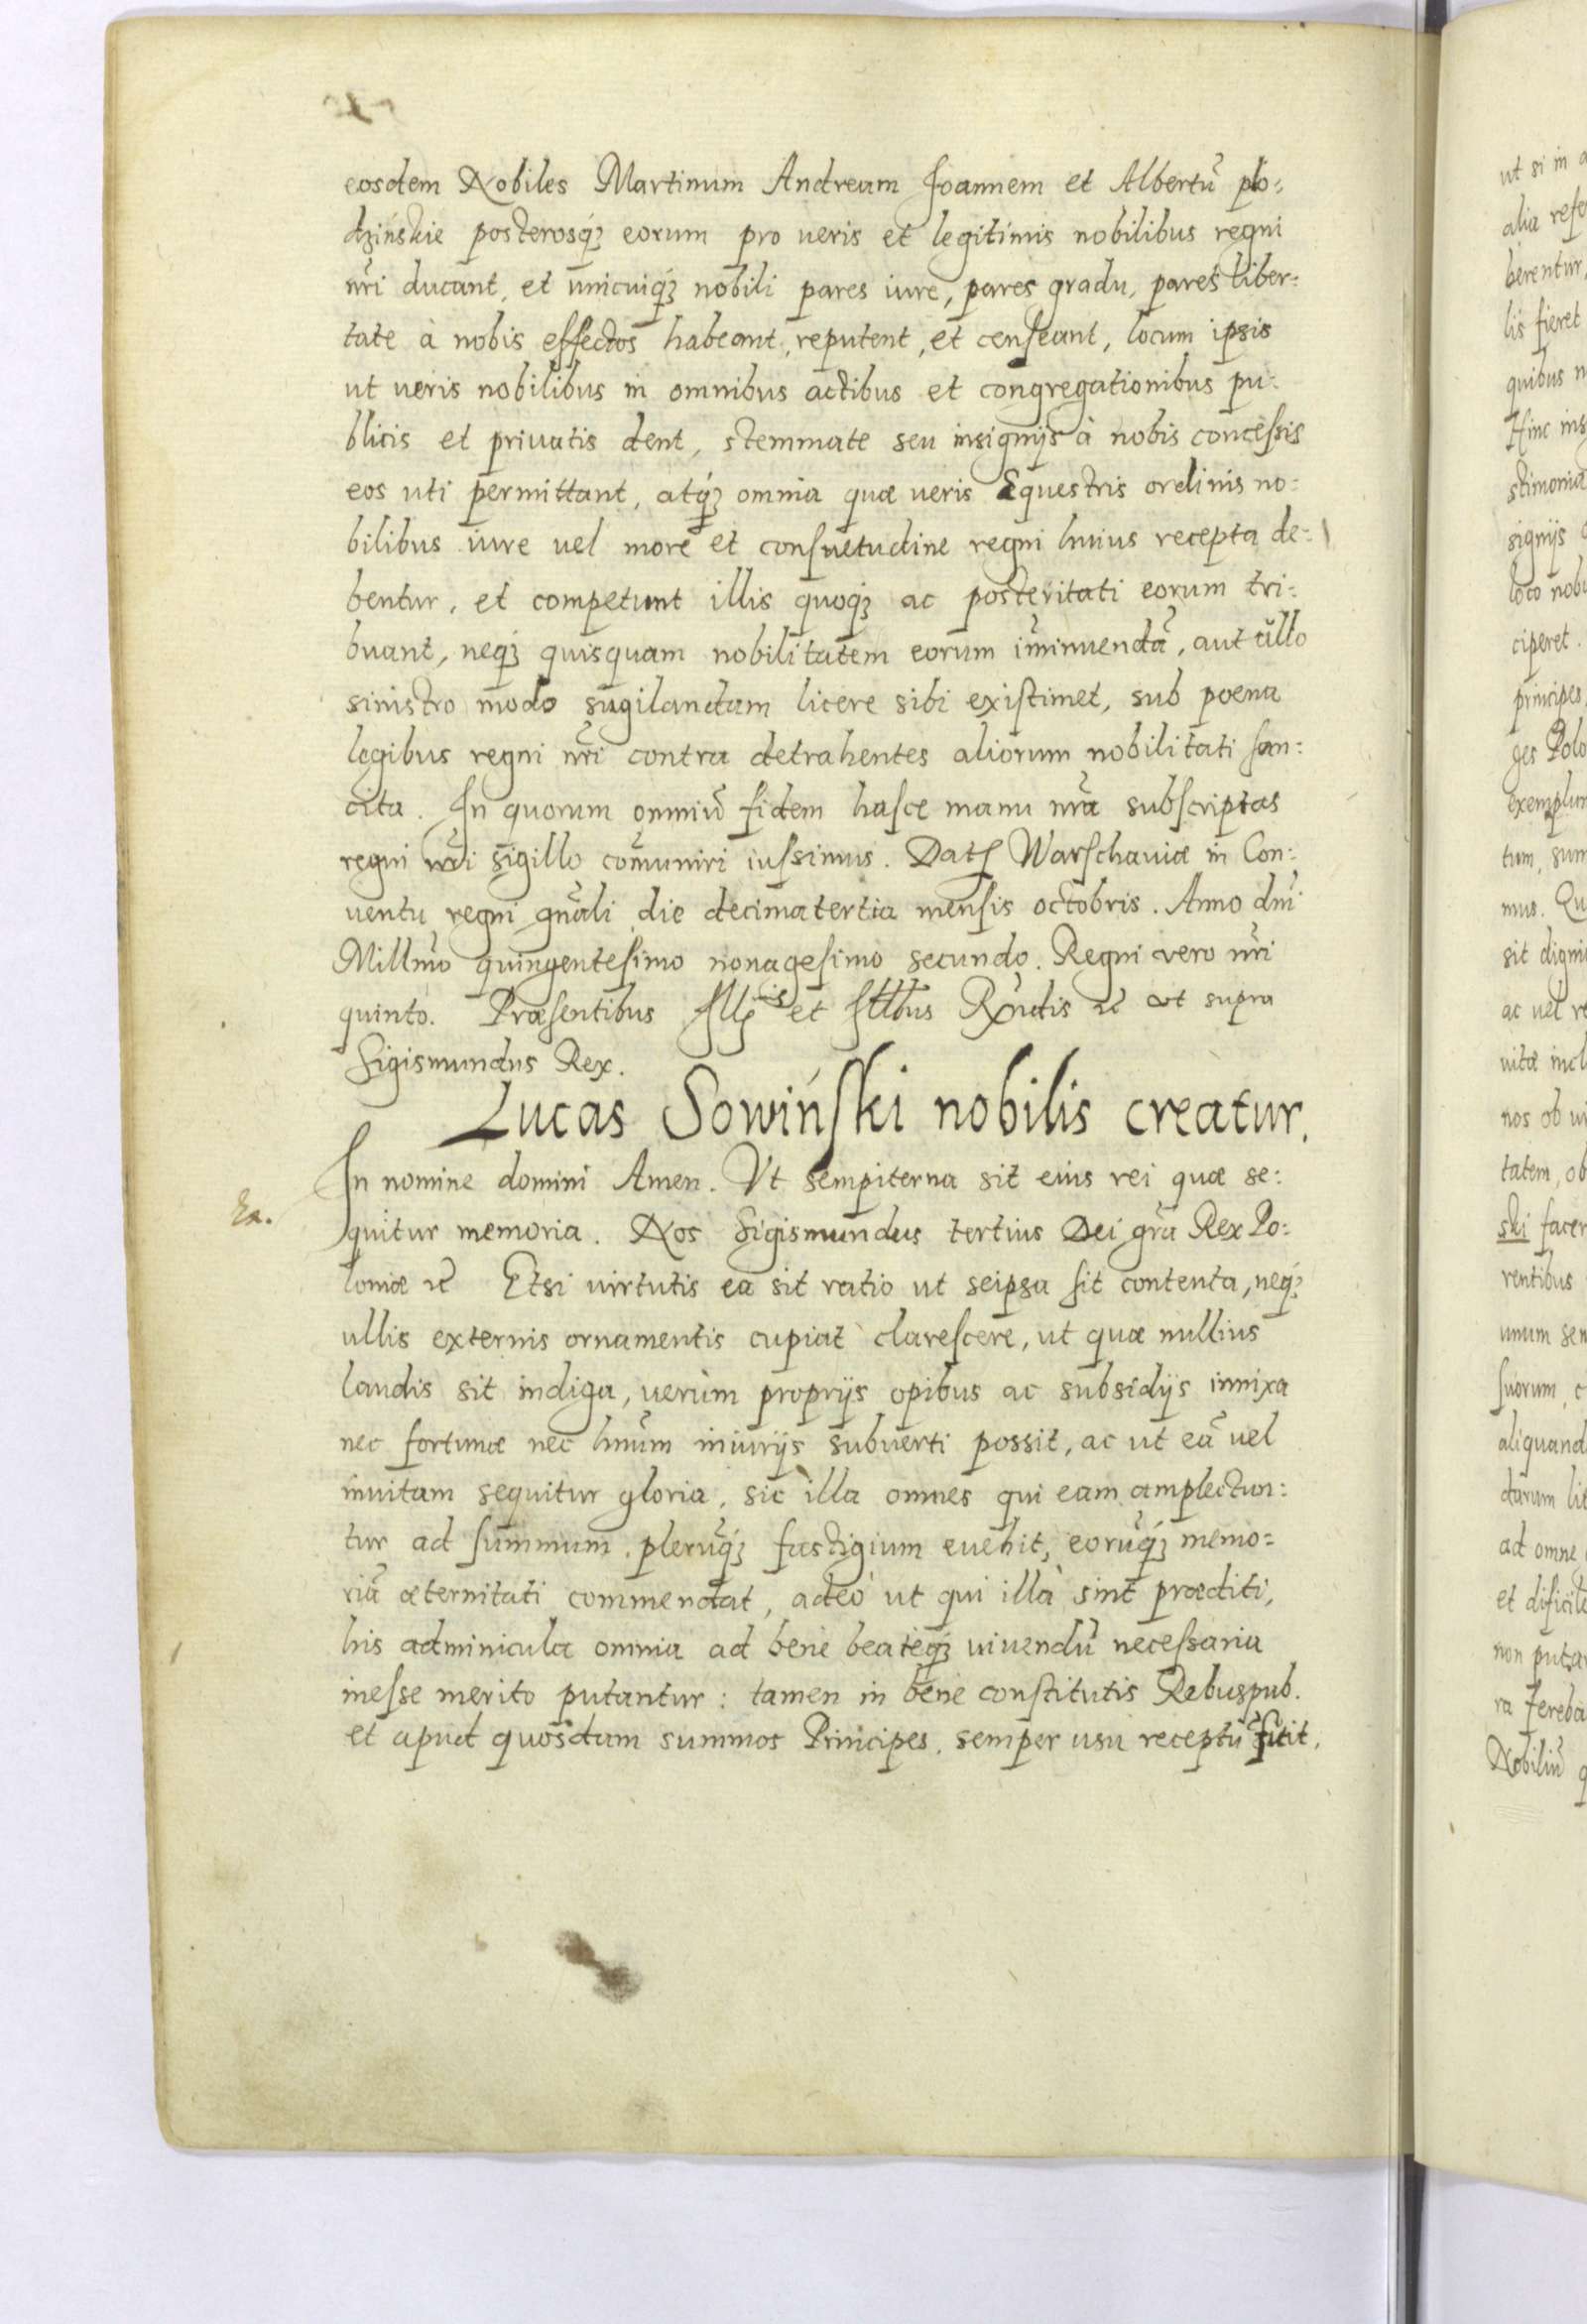 eosdem Nobiles Martinum Andream Joannem et Albertū plo:
dzińskie posterosq́ꝫ eorum pro ueris et legitimis nobilibus regni
nr̃i ducant, et unicuiq́ꝫ nobili pares iure, pares gradu, pares liber:
tate à nobis effectos habeant, reputent, et censeant, locum ipsis
ut ueris nobilibus in omnibus actibus et congregationibus pu:
blicis et priuatis dent, stemmate seu insignijs à nobis concessis
eos uti permittant, atq́ꝫ omnia quæ ueris Equestris ordinis no:
bilibus iure uel more et consuetudine regni huius recepta de:
bentur, et competunt illis quoqꝫ ac posteritati eorum tri:
buant, neq́ꝫ quisquam nobilitatem eorum im̃inuendã, aut ullo
sinistro modo sugilandam licere sibi existimet, sub poena
legibus regni nr̃i contra detrahentes aliorum nobilitati san:
cita. In quorum omniũ fidem hasce manu nr̃a subscriptas
regni nr̃i sigillo com̃uniri iussimus. Datꝭ Warschauiæ in Con:
uentu regni gnãli die decimatertia mensis octobris. Anno dnĩ
Millmõ quingentesimo nonagesimo secundo. Regni vero nr̃i
quinto. Præsentibus Illꝭis et Illbus Rx̃ndis ꝛc̃ ut supra
Sigismundus Rex.
Lucas Sowiński nobilis creatur.
In nomine domini Amen. Vt sempiterna sit eius rei quæ se:
quitur memoria. Nos Sigismundus tertius Dei gr̃a Rex Po:
loniæ ꝛc̃ Etsi uirtutis ea sit ratio ut seipsa sit contenta, neq́ꝫ
ullis externis ornamentis cupiat clarescere, ut quæ nullius
laudis sit indiga, uerùm proprijs opibus ac subsidijs innixa
nec fortunæ nec hum̃ iniurijs subuerti possit, ac ut eã uel
inuitam sequitur gloria, sic illa omnes qui eam amplectun:
tur ad summum plerũq́ꝫ fastigium euehit, eorũq́ꝫ memo:
riã æternitati commendat, adeò ut qui illà sint præditi,
his adminicula omnia ad bene beateq́ꝫ uiuendũ necessaria
inesse merito putantur: tamen in bene constitutis Rebuspub.
et apud quosdam summos Principes, semper usu receptũ fuit,